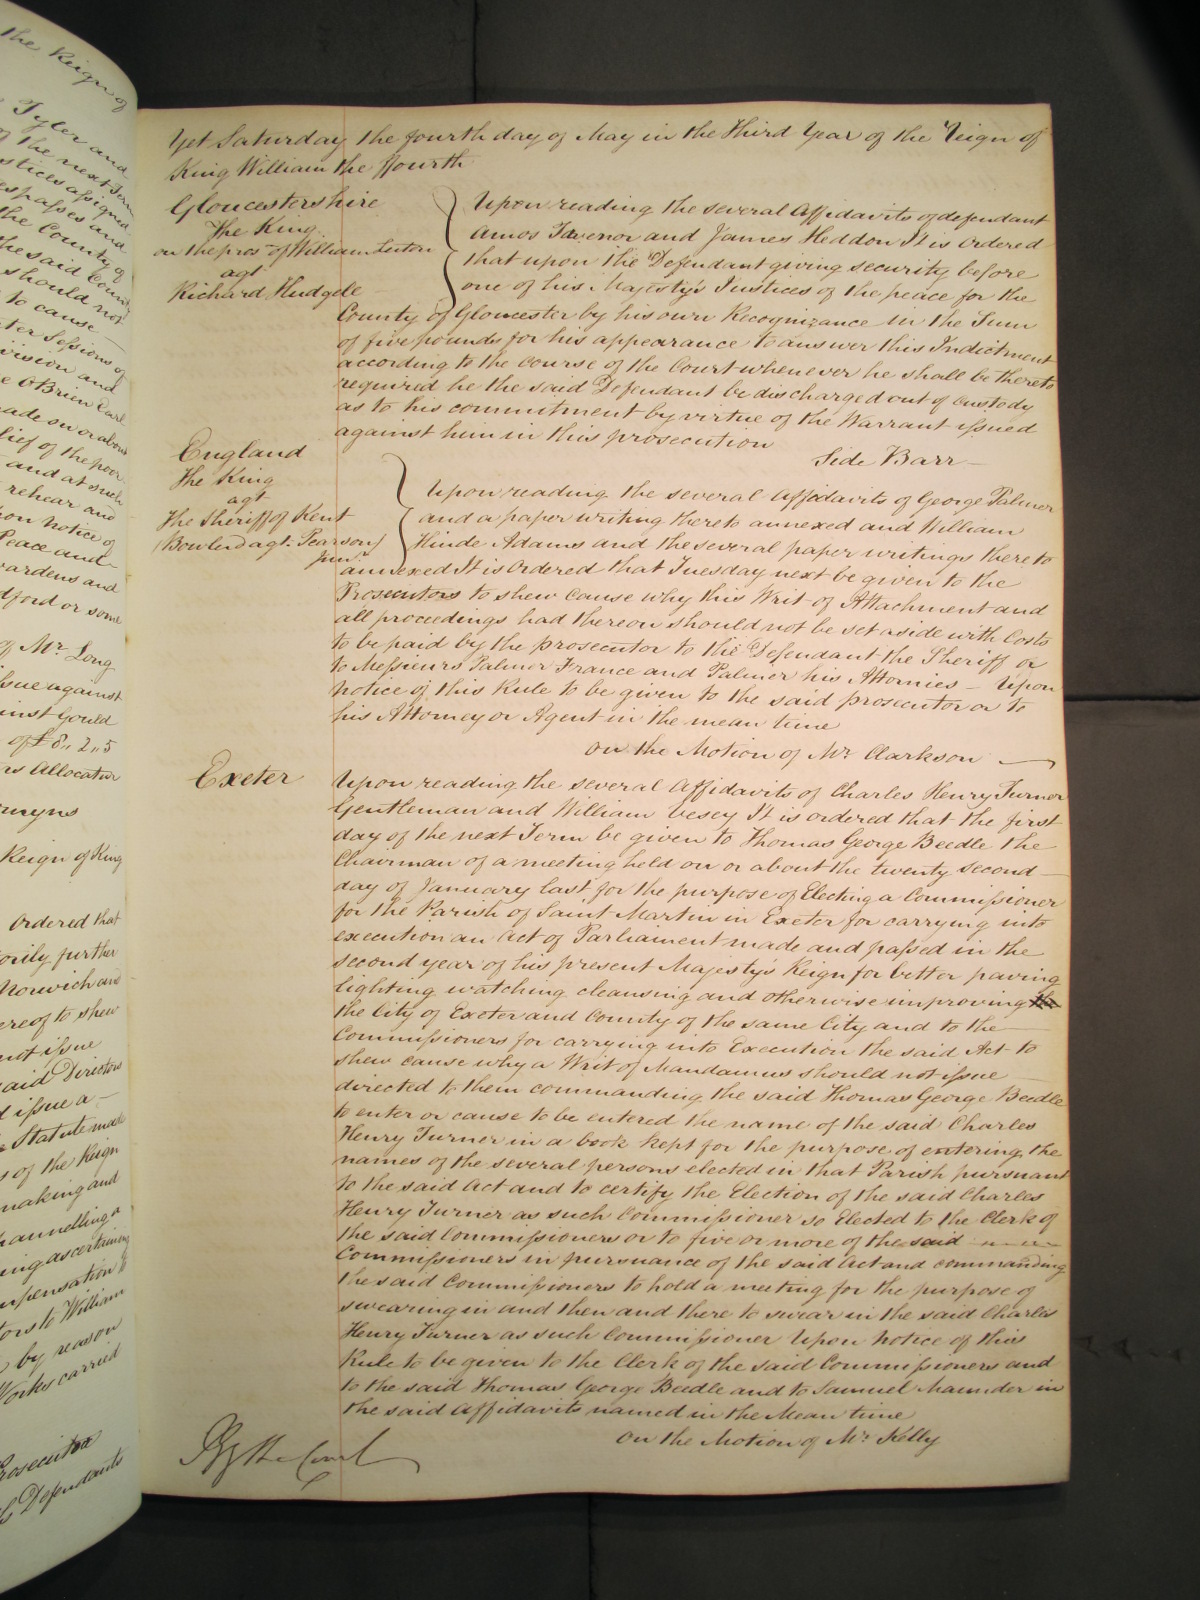 the Reign of
Tyler and
of the next Term
stices assigned
espasses and
the County of
the said County
should not
to cause
ter Sessions of
vision and
e OBrien Earl
ade on or about
lief of the poor
and at such
rehear and
on notice of
Peace and
ardens and
dford or some
of Mr. Long
ssue against
inst Gould
of £8,,2,,5
rs Allocatur
Reign of King
Ordered that
orily further
Norwich and
ereof to shew
not issue
said Directors
d issue a
Statute made
s of the Reign
making and
hannelling a
ing ascertaining
mpensation
tors to William
by reason
Works carried
Prosecutor
Defendants
Yet Saturday the fourth day of May in the Third Year of the Reign of
King William the ffourth
Gloucestershire
The King
on the pros of William Lenton
agt
Richard Hudgele
Upon reading the several Affidavits of defendant
Amos Tavenor and James Heddon It is Ordered
that upon the Defendant giving security before
one of his Majesty's Justices of the peace for the
County of Gloucester by his own Recognizance in the Sum
of five pounds for his appearance to answer this Indictment
according to the course of the Court whenever he shall be thereto
required he the said Defendant be discharged out of custody
as to his commitment by virtue of the Warrant issued
against him in this prosecution
Side Barr
England
The King
agt
The Sheriff of Kent
(Bowler agt. Pearson)
Junr.
Upon reading the several Affidavits of George Palmer
and a paper writing thereto annexed and William
Hinde Adams and the several paper writings thereto
annexed It is Ordered that Tuesday next be given to the
Prosecutors to shew cause why this Writ of Attachment and
all proceedings had thereon should not be set aside with Costs
to be paid by the prosecutor to the Defendant the Sheriff or
to Messieurs Palmer France and Palmer his Attornies – Upon
Notice of this Rule to be given to the said prosecutor or to
his Attorney or Agent in the mean time
on the Motion of Mr. Clarkson
Exeter
Upon reading the several Affidavits of Charles Henry Turner
Gentleman and William Vesey It is ordered that the first
day of the next Term be given to Thomas George Beedle the
Chairman of a meeting held on or about the twenty second
day of January last for the purpose of Electing a Commissioner
for the Parish of Saint Martin in Exeter for carrying into
execution an Act of Parliament made and passed in the
second year of his present Majesty's Reign for better paving
lighting watching cleansing and otherwise improving the
the City of Exeter and County of the same City and to the
Commissioners for carrying into Execution the said Act to
shew cause why a Writ of Mandamus should not issue
directed to them commanding the said Thomas George Beedle
to enter or cause to be entered the name of the said Charles
Henry Turner in a book kept for the purpose of entering the
names of the several persons elected in that Parish pursuant
to the said Act and to certify the Election of the said Charles
Henry Turner as such Commissioner so Elected to the Clerk of
the said Commissioners or to five or more of the said
Commissioners in pursuance of the said Act and commanding
the said Commissioners to hold a meeting for the purpose of
swearing in and then and there to swear in the said Charles
Henry Turner as such Commissioner Upon Notice of this
Rule to be given to the Clerk of the said Commissioners and
to the said Thomas George Beedle and to Samuel Maunder in
the said Affidavits named in the Mean time
on the Motion of Mr. Kelly
By the Court